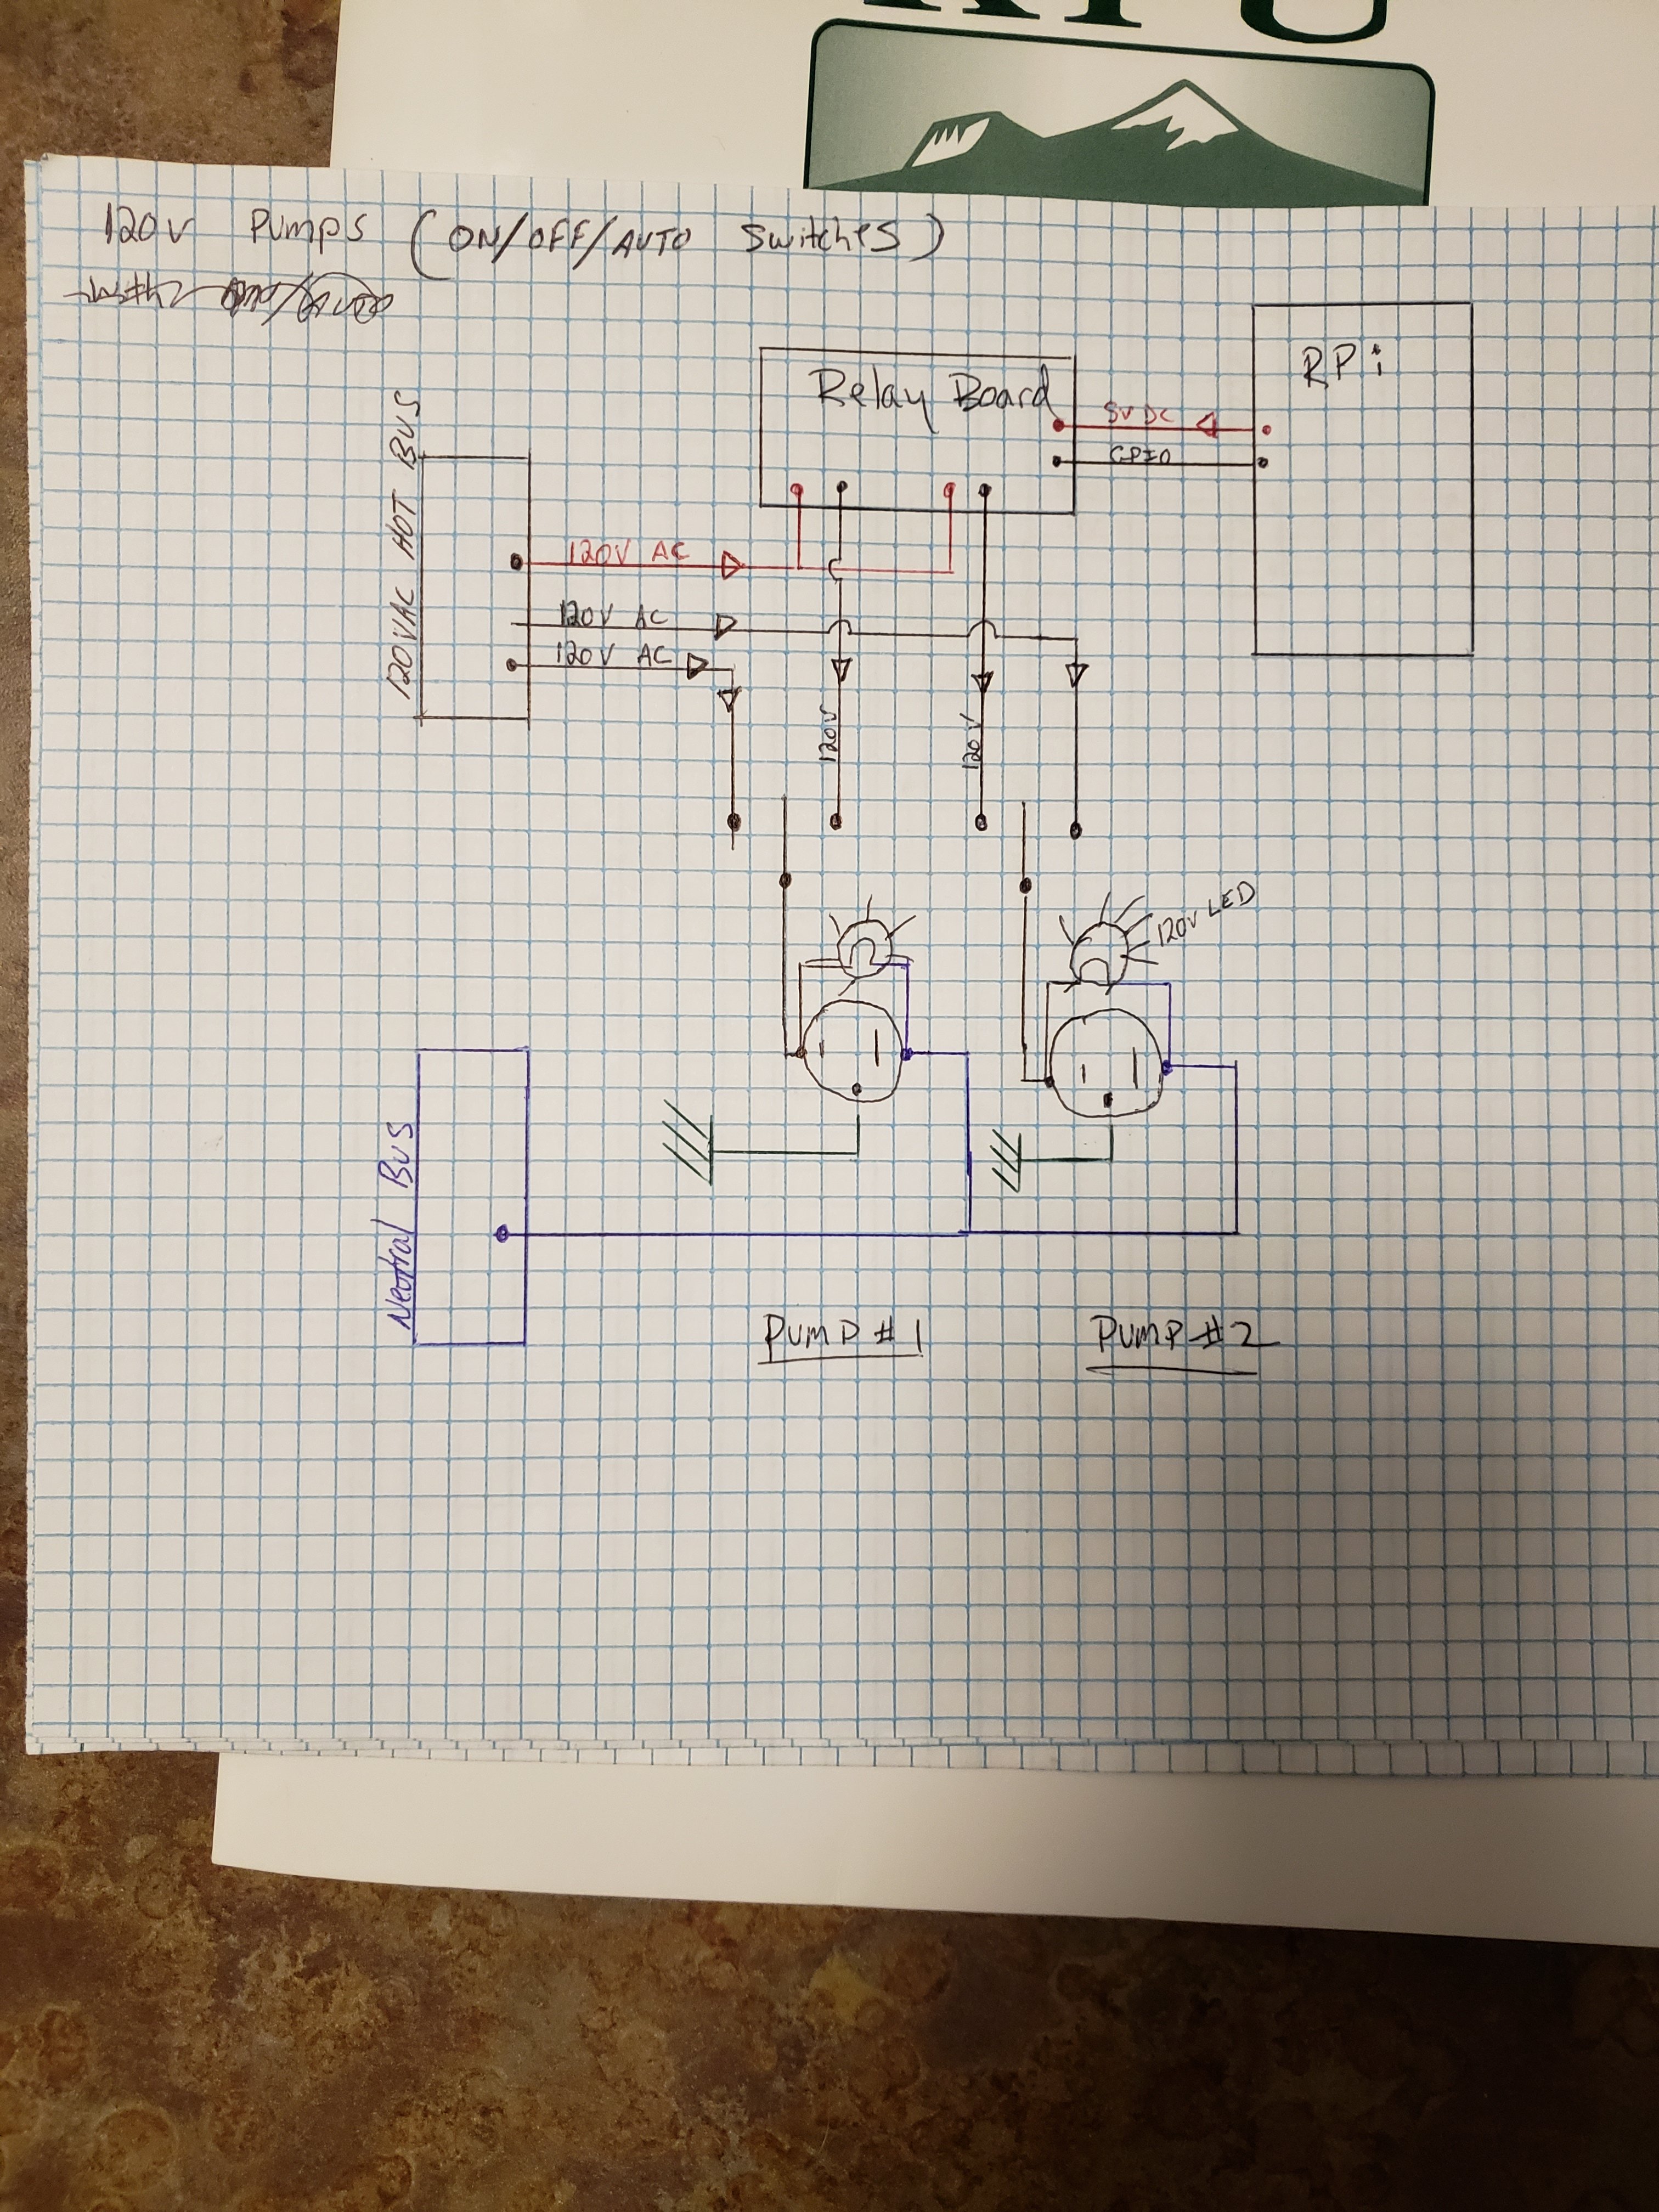 120V PUMPS (ON/OFF/AUTO switches)
Relay Board
RPi
5V DC
GPIO
120VAC HOT BUS
120V AC
120V AC
120V AC
120V
120V
120V LED
Neutral BUS
PUMP #1
PUMP #2